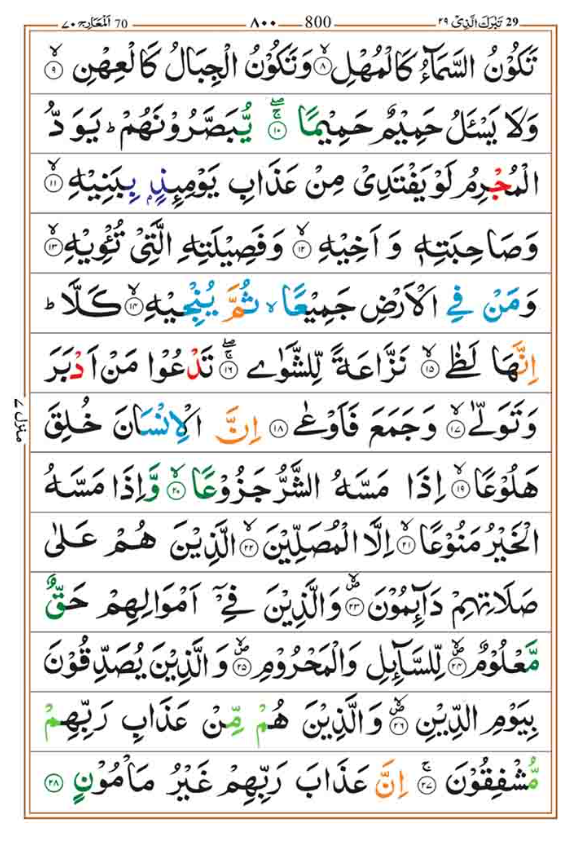 29 تَبٰرَكَ الَّذِىْ ٢٩ 800 ٨٠٠ 70 اَلْمَعَارِج ٧٠
تَكُوْنُ السَّمَآءُ كَالْمُهْلِ ۙ‏ ﴿۸﴾ وَتَكُوْنُ الْجِبَالُ كَالْعِهْنِ ۙ‏ ﴿۹﴾
وَلَا يَسْـَٔلُ حَمِيْمٌ حَمِيْمًا ۖۚ‏ ﴿۱۰﴾ يُّبَصَّرُوْنَهُمْ‌ؕ يَوَدُّ
الْمُجْرِمُ لَوْ يَفْتَدِىْ مِنْ عَذَابِ يَوْمِٮِٕذٍۢ بِبَنِيْهِۙ‏ ﴿۱۱﴾
وَ صَاحِبَتِهٖ وَ اَخِيْهِۙ‏ ﴿۱۲﴾ وَفَصِيْلَتِهِ الَّتِىْ تُـْٔوِيْهِۙ‏ ﴿۱۳﴾
وَمَنْ فِى الْاَرْضِ جَمِيْعًا ۙ ثُمَّ يُنْجِيْهِۙ‏ ﴿۱۴﴾ كَلَّا ؕ
اِنَّهَا لَظٰىۙ‏ ﴿۱۵﴾ نَزَّاعَةً لِّلشَّوٰى‌ ۖۚ‏ ﴿۱۶﴾ تَدْعُوْا مَنْ اَدْبَرَ
وَتَوَلّٰىۙ‏ ﴿۱۷﴾ وَجَمَعَ فَاَوْعٰى‏ ﴿۱۸﴾ اِنَّ الْاِنْسَانَ خُلِقَ
هَلُوْعًا ۙ‏ ﴿۱۹﴾ اِذَا مَسَّهُ الشَّرُّ جَزُوْعًا ۙ‏ ﴿۲۰﴾ وَّاِذَا مَسَّهُ
الْخَيْرُ مَنُوْعًا ۙ‏ ﴿۲۱﴾ اِلَّا الْمُصَلِّيْنَۙ‏ ﴿۲۲﴾ الَّذِيْنَ هُمْ عَلٰى
صَلَاتِهِمْ دَآٮِٕمُوْنَ ۙ‏ ﴿۲۳﴾ وَالَّذِيْنَ فِىْۤ اَمْوَالِهِمْ حَقٌّ
مَّعْلُوْمٌ ۙ‏ ﴿۲۴﴾ لِّلسَّآٮِٕلِ وَالْمَحْرُوْمِ ۙ‏ ﴿۲۵﴾ وَالَّذِيْنَ يُصَدِّقُوْنَ
بِيَوْمِ الدِّيْنِ ۙ‏ ﴿۲۶﴾ وَالَّذِيْنَ هُمْ مِّنْ عَذَابِ رَبِّهِمْ
مُّشْفِقُوْنَ‌ۚ‏ ﴿۲۷﴾ اِنَّ عَذَابَ رَبِّهِمْ غَيْرُ مَاْمُوْنٍ‏ ﴿۲۸﴾
منزل ٧